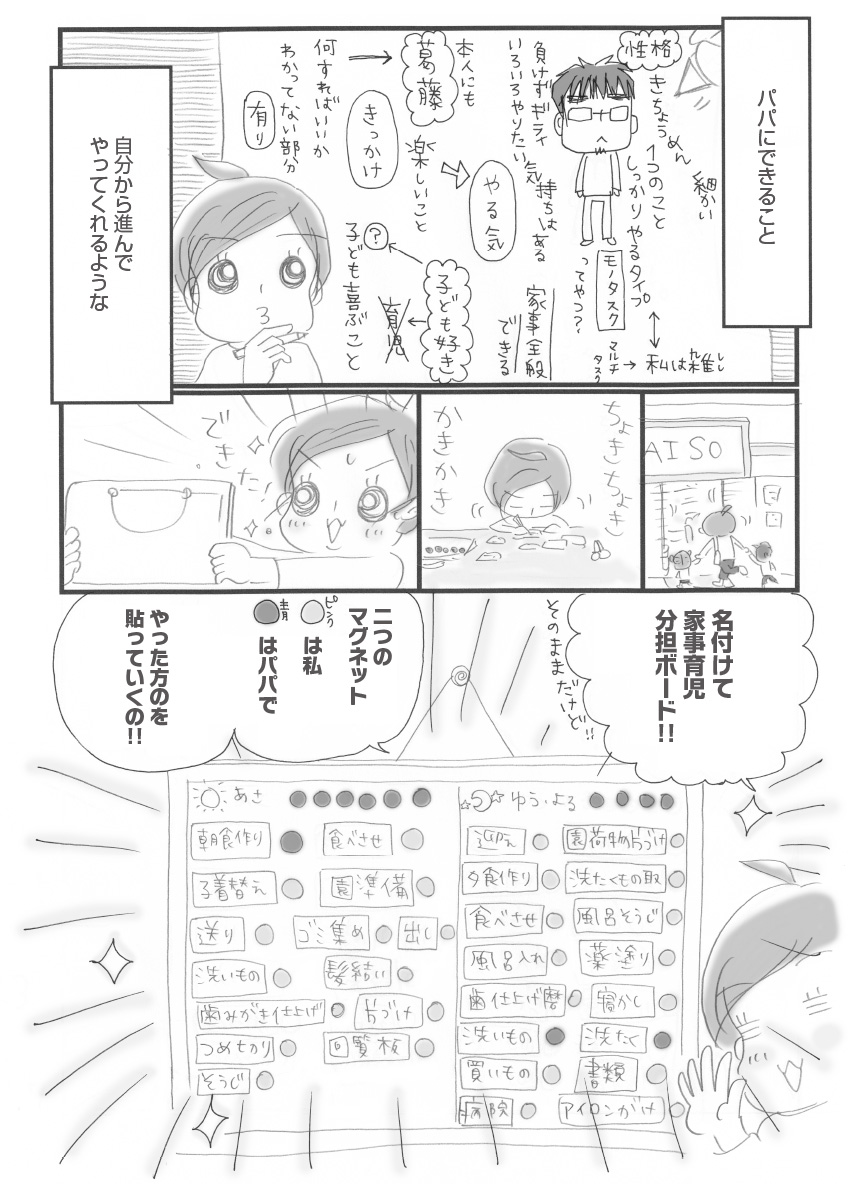 パパにできること
性格
きちょうめん
細かい
1つのこと
しっかりやるタイプ
モノタスク
ってやつ?
マルチ
タスク
→私は雑
負けずギライ
いろいろやりたい気持ちはある
家事全般
できる
やる気
楽しいこと
きっかけ
子ども好き
育児
?
子ども喜ぶこと
本人にも
葛藤
何すればいいか
わかってない部分
有り
自分から進んで
やってくれるような
AISO
ちょきちょき
かきかき
できた!
名付けて
家事育児
分担ボード!!
そのまま だけど!!
二つの
マグネット
ピンク
は私
青
はパパで
やった方のを
貼っていくの!!
あさ
朝食作り
食べさせ
子着替え
園準備
送り
ゴミ集め
出し
洗いもの
髪結い
歯みがき仕上げ
片づけ
つめ切り
回覧板
そうじ
ゆう・よる
迎え
園荷物片づけ
夕食作り
洗たくもの取
食べさせ
風呂そうじ
風呂入れ
薬塗り
歯仕上げ磨
寝かし
洗いもの
洗たく
買いもの
書類
病院
アイロンがけ